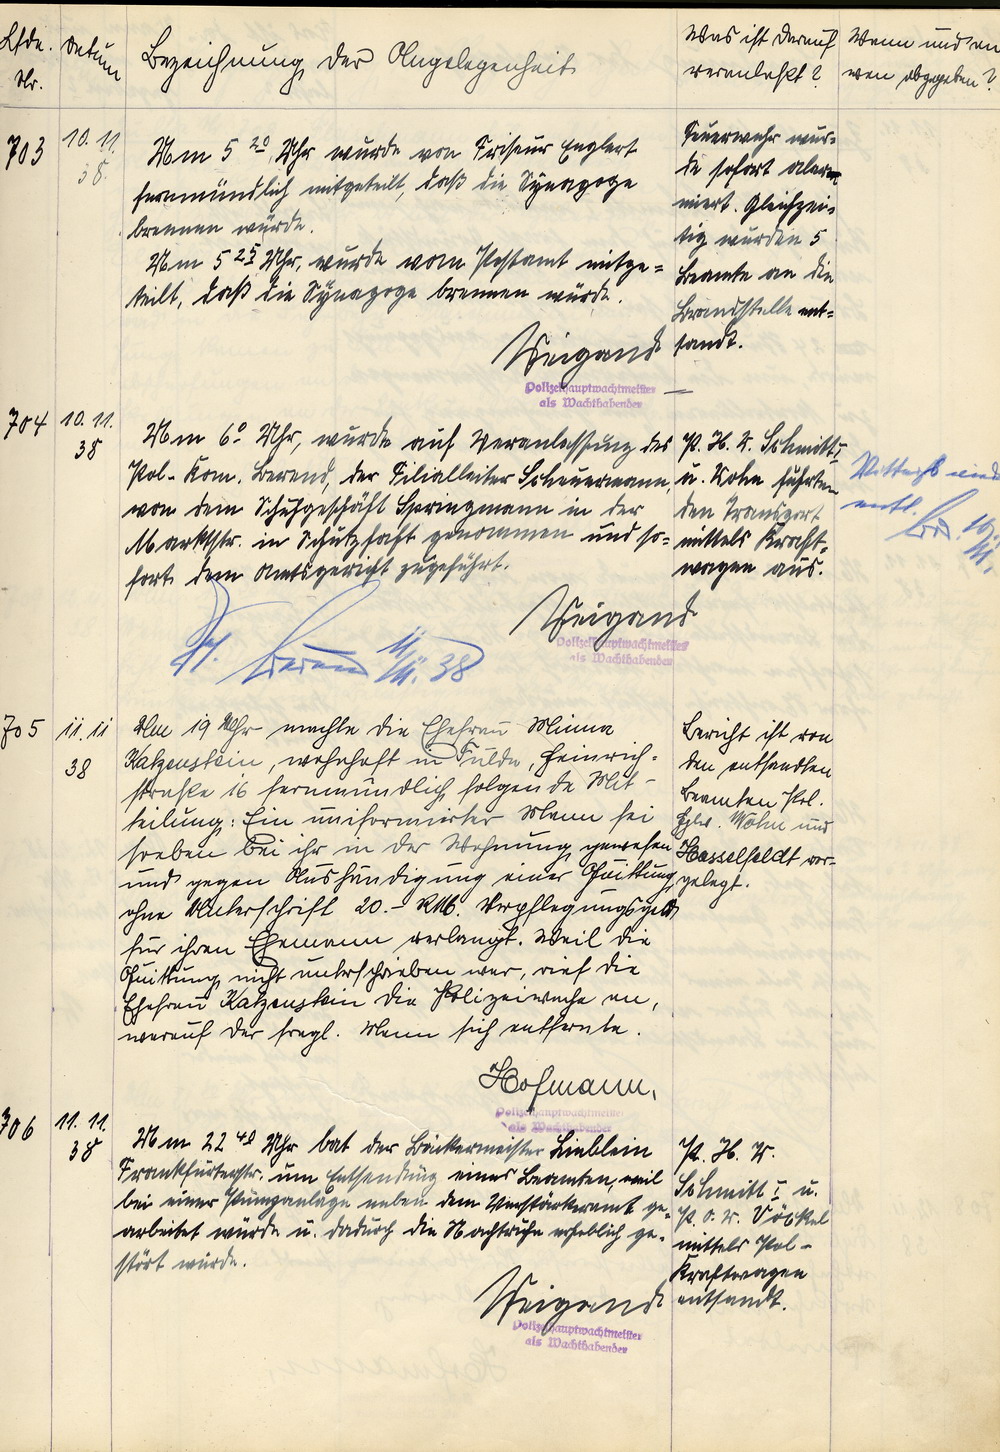 Lfde. Nr.
Datum
Bezeichnung der Angelegenheit
Was ist darauf
veranlaßt?
Wann und an
wen abgegeben?
703
10. 11.
38
Um 5 20 Uhr wurde von Friseur Englert
fernmündlich mitgeteilt, daß die Synagoge
brennen würde.
Um 5 25 Uhr, wurde vom Postamt mitge=
teilt, daß die Synagoge brennen würde.
Weigand
Polizeihauptwachtmeister
als Wachthabender
Feuerwehr wur=
de sofort alar=
miert. Gleichzei=
tig wurden 5
Beamte an die
Brandstelle ent=
sandt.
704
10. 11.
38
Um 6 0 Uhr, wurde auf Veranlassung des
Pol.-Kom. Berend, der Filialleiter Scheuermann,
von dem Schuhgeschäft Springmann in der
Marktstr. in Schutzhaft genommen und so=
fort dem Amtsgericht zugeführt.
Weigand
Polizeihauptwachtmeister
als Wachthabender
P. H. W. Schmitt I
u. Kohn führten
den Transport
mittels Kraft=
wagen aus.
mittags wieder
entl.
11/11. 38
705
11. 11
38
Um 19 Uhr machte die Ehefrau Minna
Katzenstein, wohnhaft in Fulda, Heinrich=
straße 16 fernmündlich folgende Mit-
teilung: Ein uniformierter Mann sei
soeben bei ihr in der Wohnung gewesen
und gegen Aushändigung einer Quittung
ohne Unterschrift 20.- RM. Verpflegungsgeld
für ihren Ehemann verlangt. Weil die
Quittung nicht unterschrieben war, rief die
Ehefrau Katzenstein die Polizeiwache an,
worauf der fragl. Mann sich entfernte.
Hofmann,
Polizeihauptwachtmeister
als Wachthabender
Bericht ist von
den entsandten
Beamten Pol.
und
Hasselfeldt vor-
gelegt.
706
11. 11.
38
Um 22 40 Uhr bat der Bäckermeister Lieblein
Frankfurterstr. um Entsendung eines Beamten, weil
bei einer Pumpanlage neben dem Verstärkeramt ge=
arbeitet würde u. dadurch die Nachtruhe erheblich ge=
stört wurde.
Weigand
Polizeihauptwachtmeister
als Wachthabender
P. H. W.
Schmitt I u.
P. O. W. Vöckel
mittels Pol-
Kraftwagen
entsandt.